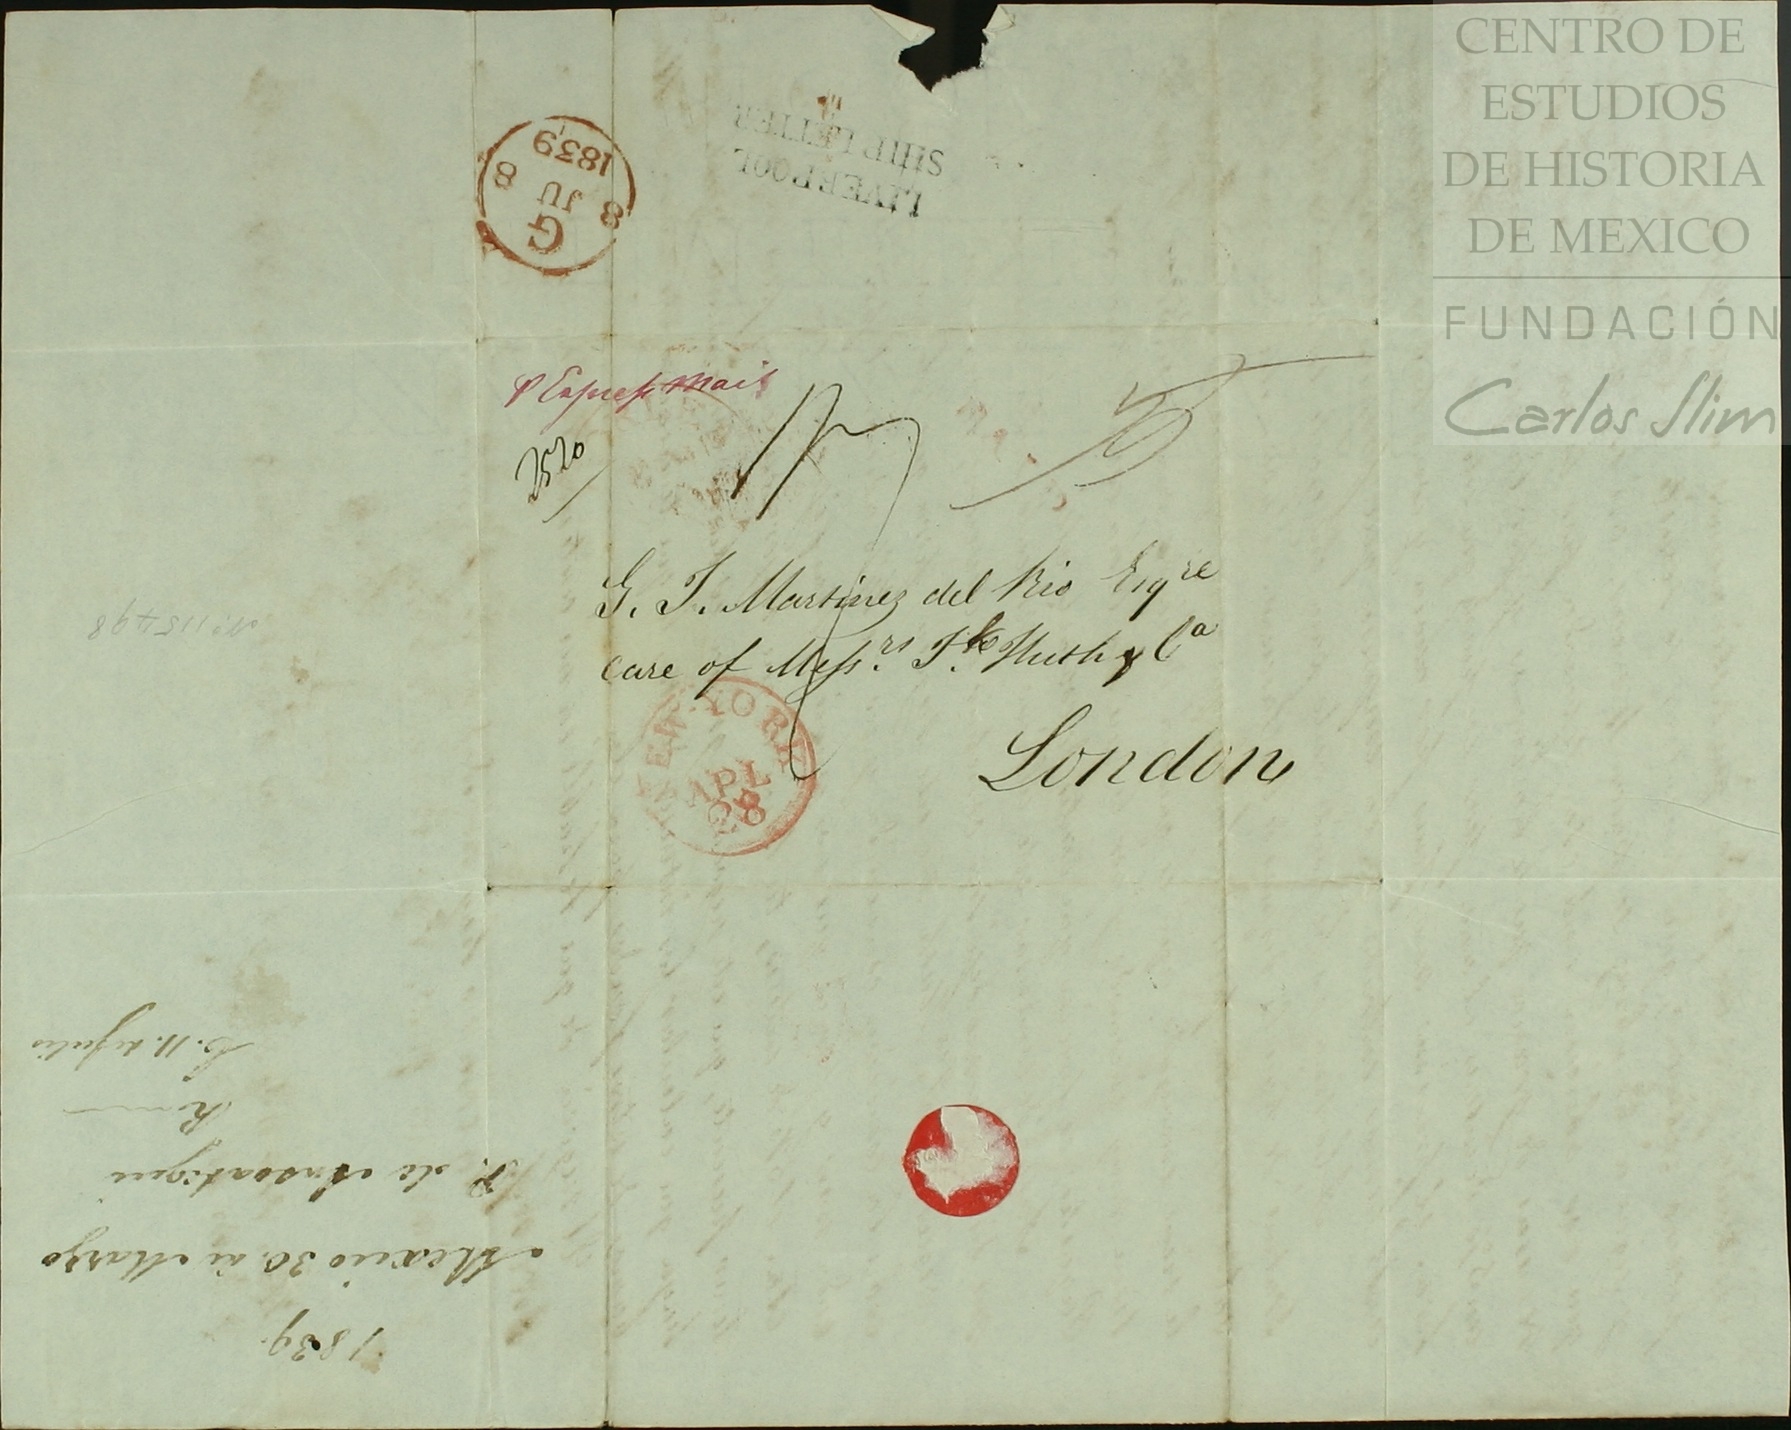 CENTRO DE
ESTUDIOS
DE HISTORIA
DE MEXICO
FUNDACIÓN
Carlos Slim
LIVERPOOL
SHIP LETTER
G
8 JU 8
1839
P Express Mail
2520
G. J. Martinez del Rio Esqre
care of Messrs. Fk Huth y Ca
London
NEW-YORK
APL
28
No 115498
1839.
Mexico 30. de Marzo
P. de Ansoategui
R
C. 11. de Julio